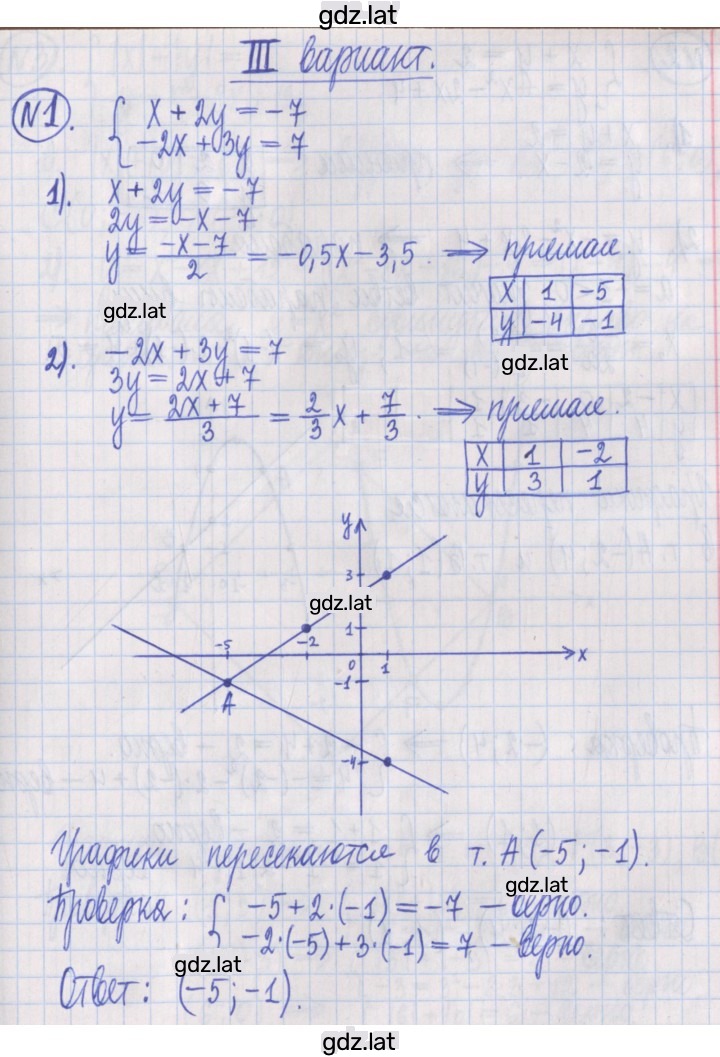 gdz.lat
III вариант.
№1. { x + 2y = -7
-2x + 3y = 7
1). x + 2y = -7
2y = -x - 7
y = (-x-7)/2 = -0,5x - 3,5. ⇒ прямая.
x 1 -5
y -4 -1
gdz.lat
gdz.lat
2). -2x + 3y = 7
3y = 2x + 7
y = (2x+7)/3 = 2/3 x + 7/3. ⇒ прямая.
x 1 -2
y 3 1
y
3
gdz.lat
1
-5 -2 0 1 x
-1
A
-4
Графики пересекаются в т. A (-5; -1).
gdz.lat
Проверка: { -5 + 2·(-1) = -7 - верно.
-2·(-5) + 3·(-1) = 7 - верно.
gdz.lat
Ответ: (-5; -1).
gdz.lat